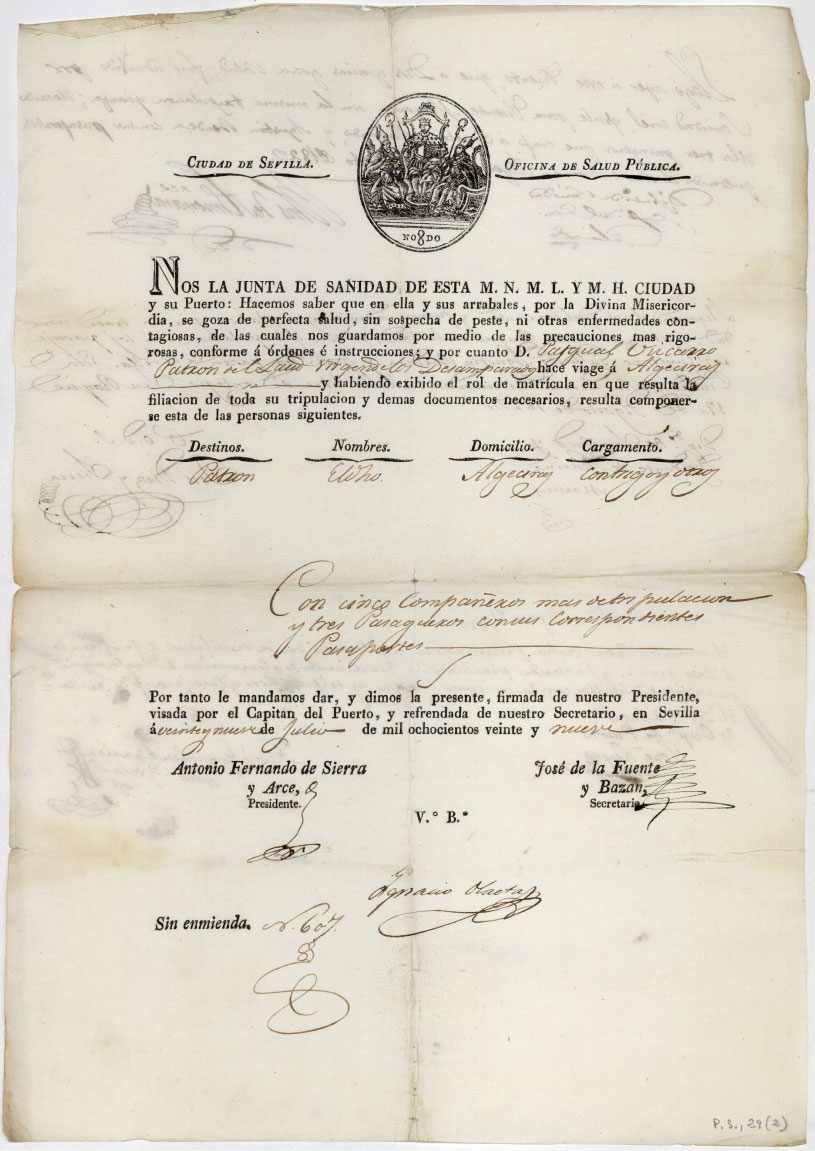 CIUDAD DE SEVILLA.
OFICINA DE SALUD PÚBLICA.
NO8DO
NOS LA JUNTA DE SANIDAD DE ESTA M. N. M. L. Y M. H. CIUDAD
y su Puerto: Hacemos saber que en ella y sus arrabales, por la Divina Misericor-
dia, se goza de perfecta salud, sin sospecha de peste, ni otras enfermedades con-
tagiosas, de las cuales nos guardamos por medio de las precauciones mas rigo-
rosas, conforme á órdenes é instrucciones; y por cuanto D. Pasqual
Patron del Laud Virgen de los Desamparados hace viage á Algeciras
y habiendo exibido el rol de matrícula en que resulta la
filiacion de toda su tripulacion y demas documentos necesarios, resulta componer-
se esta de las personas siguientes.
Destinos. Nombres. Domicilio. Cargamento.
Patron El dho. Algeciras con trigo y otros
Con cinco Compañeros mas de tripulacion
y tres Pasageros con sus Correspondientes
Pasaportes
Por tanto le mandamos dar, y dimos la presente, firmada de nuestro Presidente,
visada por el Capitan del Puerto, y refrendada de nuestro Secretario, en Sevilla
á veinte y nueve de Julio de mil ochocientos veinte y nueve
Antonio Fernando de Sierra
y Arce,
Presidente.
José de la Fuente
y Bazan,
Secretario.
V.º B.º
Ignacio Olaeta
Sin enmienda. N. 607.
P.S., 29(2)